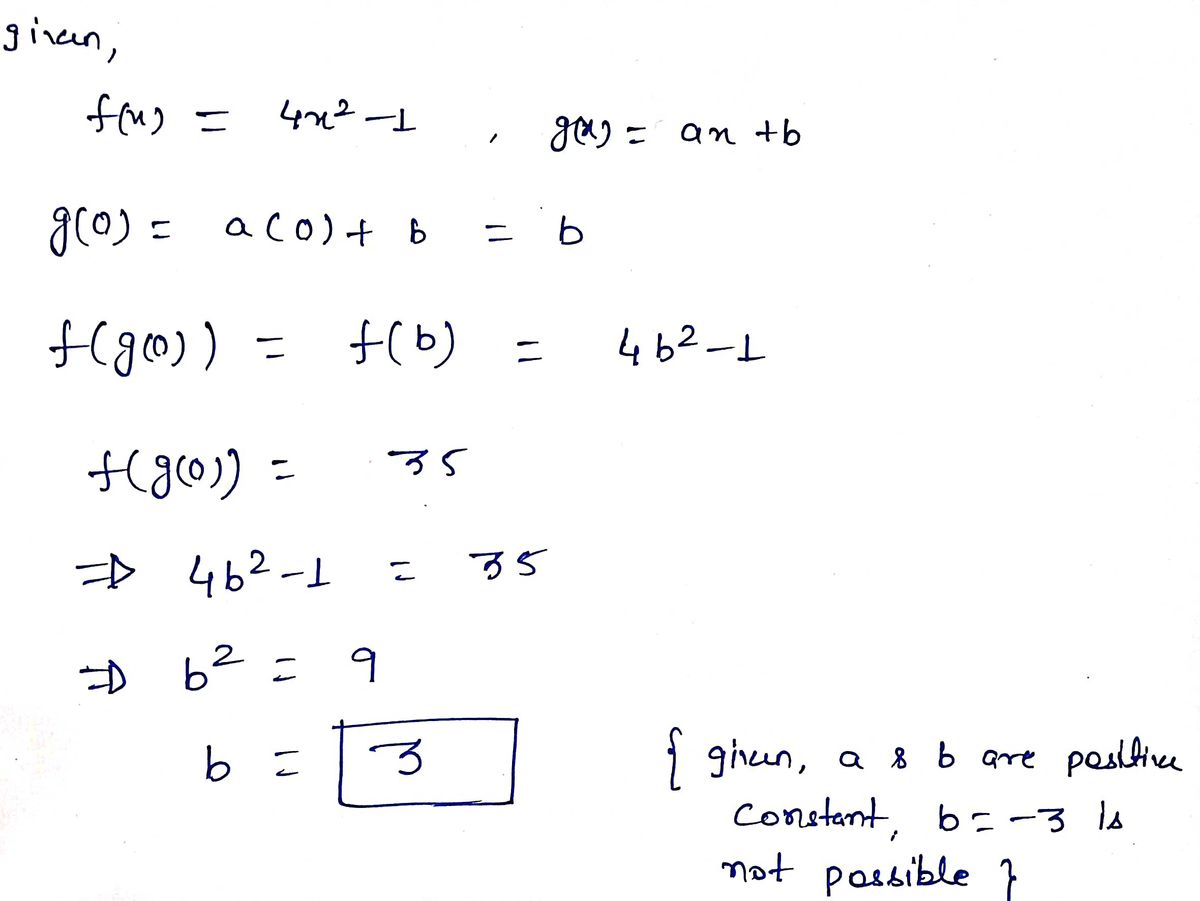 given,
f(x) = 4x² - 1 , g(x) = ax + b
g(0) = a(0) + b = b
f(g(0)) = f(b) = 4b² - 1
f(g(0)) = 35
⇒ 4b² - 1 = 35
⇒ b² = 9
b = 3
{ given, a & b are positive
constant, b = -3 is
not possible }